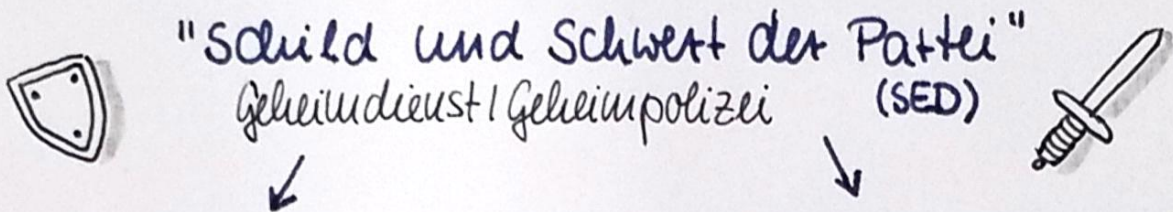 "Schild und Schwert der Partei"
Geheimdienst / Geheimpolizei (SED)